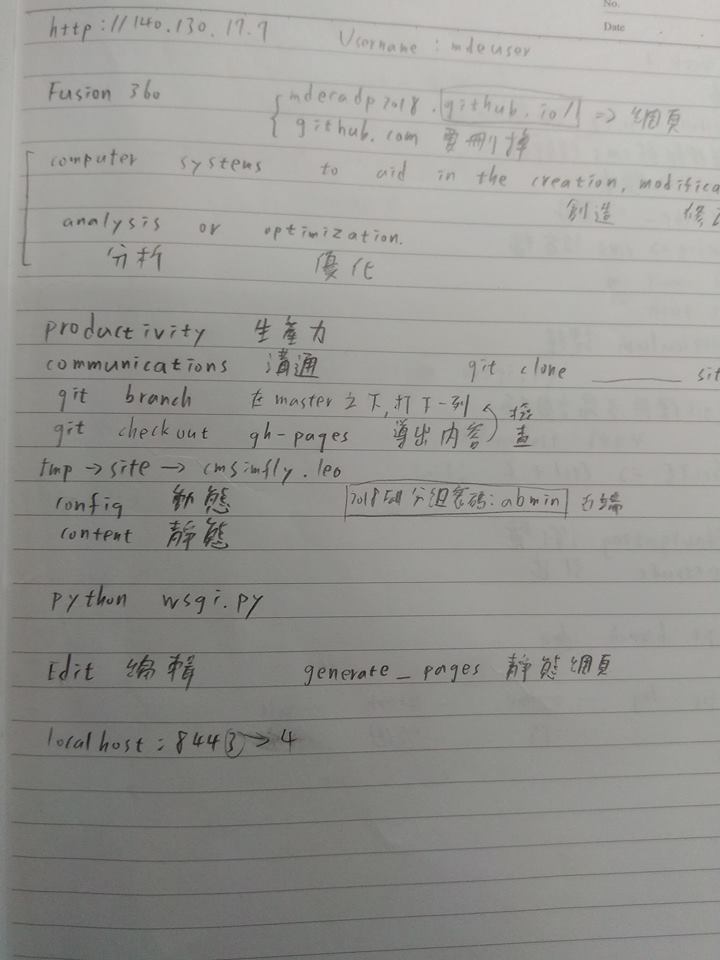 No.
Date
http://140.130.17.7 Username : mdeuser
Fusion 360
mdecadp2018.github.io/ => 網頁
github.com 要刪掉
computer systems to aid in the creation, modifica
創造 修
analysis or optimization.
分析 優化
productivity 生產力
communications 溝通 git clone ______ sit
git branch 在master之下,打下一列
git checkout gh-pages 導出內容 檢查
tmp → site → cmsimfly.leo
config 動態 2018Fall分組密碼:abmin 右端
content 靜態
python wsgi.py
Edit 編輯 generate_pages 靜態網頁
localhost:8443 → 4